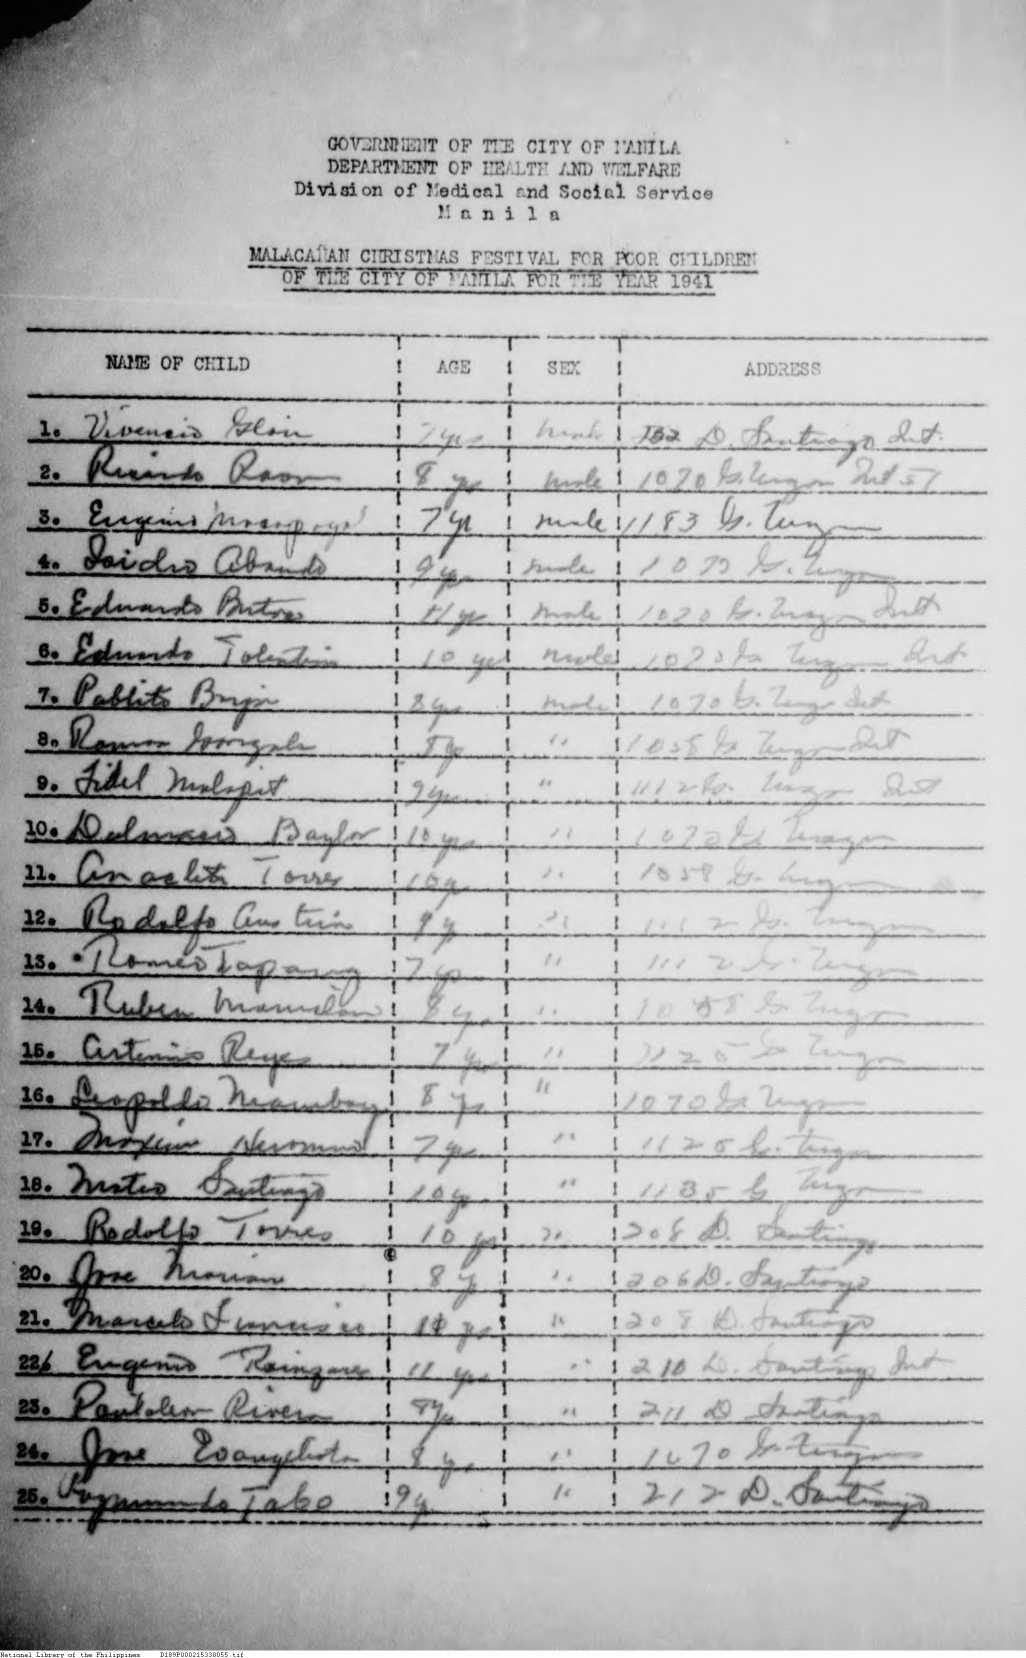 GOVERNMENT OF THE CITY OF MANILA
DEPARTMENT OF HEALTH AND WELFARE
Division of Medical and Social Service
Manila
MALACAÑAN CHRISTMAS FESTIVAL FOR POOR CHILDREN
OF THE CITY OF MANILA FOR THE YEAR 1941
NAME OF CHILD AGE SEX ADDRESS
1. Vivencio 7 yrs male 132 D. Santiago Int.
2. Ricardo 8 yrs male 1070 G. Tuazon Int 57
3. Eugenio 7 yr male 1183 G. Tuazon
4. Isidro Abando 9 yrs male G. Tuazon
5. Eduardo 11 yrs male G. Tuazon Int
6. Eduardo Tolentino 10 yrs male G. Tuazon Int
7. Pablito 8 yrs male 1070 G. Tuazon Int
8. Ramon Gonzales 8 yr " 1058 G. Tuazon Int
9. Fidel Malapit 9 yrs " 1112 G. Tuazon Int
10. Dalmacio Baylor 10 yrs " G. Tuazon
11. Anacleto Torres 10 yr " 1058 G. Tuazon
12. Rodolfo Austria yr " 1112 G. Tuazon
13. Romeo Tapang 7 yrs " 1112 G. Tuazon
14. Ruben 8 yrs " G. Tuazon
15. Artemio Reyes 7 yrs " 1125 G. Tuazon
16. Leopoldo 8 yrs " 1070 G. Tuazon
17. 7 yrs " 1125 G. Tuazon
18. Mateo Santiago 10 yr " 1135 G. Tuazon
19. Rodolfo Torres 10 yrs " 208 D. Santiago
20. Jose 8 y " 206 D. Santiago
21. Marcelo Francisco yrs " 208 D. Santiago
22. Eugenio 11 yrs " 210 D. Santiago Int
23. Pantaleon Rivera 8 yrs " 211 D. Santiago
24. Jose Evangelista 8 y. " G. Tuazon
25. Tabo 9 y. " 212 D. Santiago
National Library of the Philippines D189P000215338055.tif